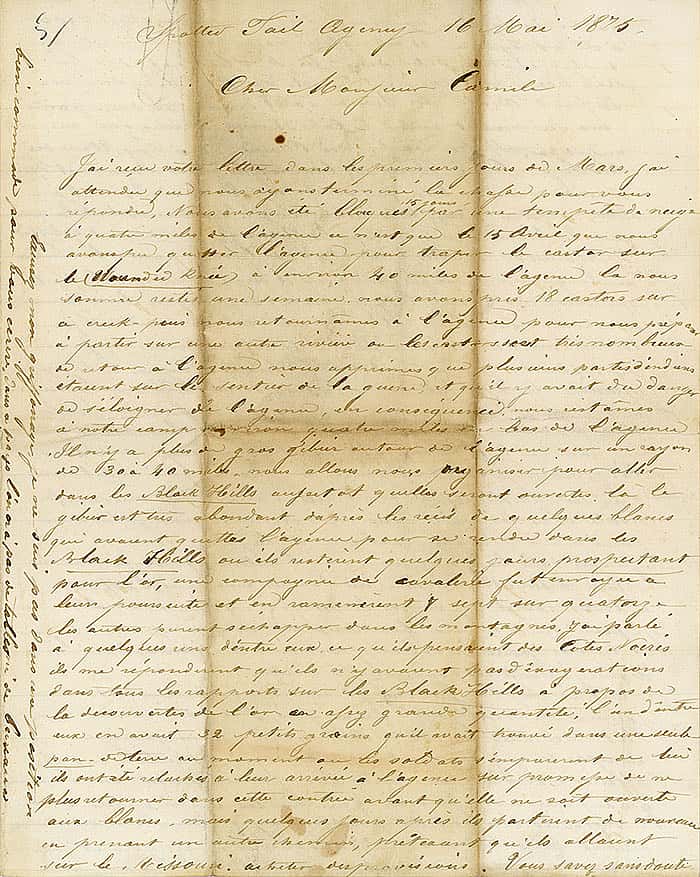 Spotted Tail Agency 16 Mai 1875.
Cher Monsieur Camile
J'ai recu votre lettre dans les premiers jours de Mars, j'ai
attendu que nous ayons terminé la chasse pour vous
repondre, Nous avons été bloqués 15 jours par une tempête de neige
à quatre miles de l'agence ce n'est que le 15 Avril que nous
avons pu quitter l'agence pour traper le castor sur
le (Wounded Knee) à environ 40 miles de l'agence la nous
sommes restés une semaine, nous avons pris 18 castors sur
ce creek puis nous retournames à l'agence pour nous prépar
à partir sur une autre riviere ou les castors sont très nombreux
de retour à l'agence nous apprimes que plusieurs partis d'indiens
etaient sur le sentier de la guerre et qu'il y avait du danger
de s'éloigner de l'agence, en consequence, nous restâmes
à notre camp environ quatre miles bas de l'agence
Il n'y a plus de gros gibier autour de l'agence sur un rayon
de 30 à 40 miles, nous allons nous organiser pour aller
dans les Black Hills aussitot quelles seront ouvertes la le
gibier est très abondant d'après les récis de quelques blancs
qui avaient quittés l'agence pour se rendre dans les
Black Hills ou ils restèrent quelques jours prospectant
pour l'or, une compagnie de cavalerie fut envoyée à
leur poursuite et en ramenèrent 7 sept sur quatorze
les autres purent sechapper dans les montagnes, j'ai parlé
à quelques uns d'entre eux, ce qu'ils pensaient des Cotes Noires
ils me répondirent qu'ils n'y avaient pas d'éxagerations
dans tous les rapports sur les Black Hills à propos de
la decouvertes de l'or en assez grande quantité, l'un d'entre
eux en avait 32 petits grains qu'il avait trouvé dans une seule
pan de terre au moment ou les soldats s'emparerent de lui
ils ont été relachés à leur arrivée à l'agence sur promesse de ne
plus retourner dans cette contrée avant qu'elle ne soit ouverte
aux blancs, mais quelques jours après ils partirent de nouveau
en prenant un autre chemin, prétextant qu'ils allaient
sur le Missouri acheter des provisions. Vous savez sans doute
Excusez mon griffonage je ne suis pas dans une position
bien commode pour vous ecrire, dans ce pays l'on n'a pas de table ni de bureau